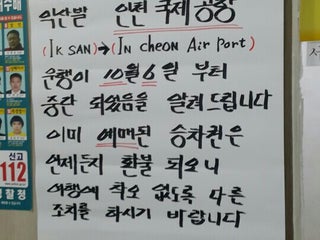 익산발 인천 국제 공항
(IK SAN) → (IN cheon Air Port)
운행이 10월 6일 부터
중단 되었음을 알려 드립니다
이미 예매된 승차권은
언제든지 환불 되오니
여행에 착오 없도록 다른
조치를 하시기 바랍니다
수배
신고
112
경찰청